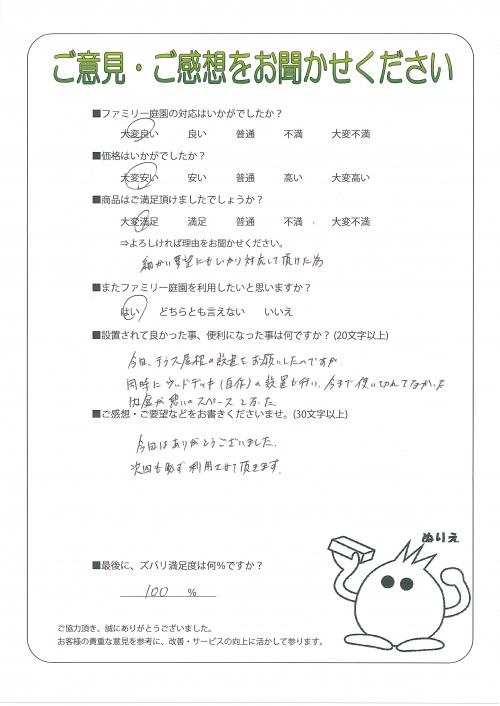 ご意見・ご感想をお聞かせください
■ファミリー庭園の対応はいかがでしたか？
大変良い 良い 普通 不満 大変不満
■価格はいかがでしたか？
大変安い 安い 普通 高い 大変高い
■商品はご満足頂けましたでしょうか？
大変満足 満足 普通 不満 大変不満
⇒よろしければ理由をお聞かせください。
細かい要望にもしっかり対応して頂けた為
■またファミリー庭園を利用したいと思いますか？
はい どちらとも言えない いいえ
■設置されて良かった事、便利になった事は何ですか？(20文字以上)
今回、テラス屋根の設置をお願いしたのですが
同時にウッドデッキ(自作)の設置も行い、今まで使い切れてなかった
内庭が憩いのスペースとなった
■ご感想・ご要望などをお書きくださいませ。(30文字以上)
今回はありがとうございました。
次回も必ず利用させて頂きます。
ぬりえ
■最後に、ズバリ満足度は何%ですか？
100 %
ご協力頂き、誠にありがとうございました。
お客様の貴重な意見を参考に、改善・サービスの向上に活かして参ります。